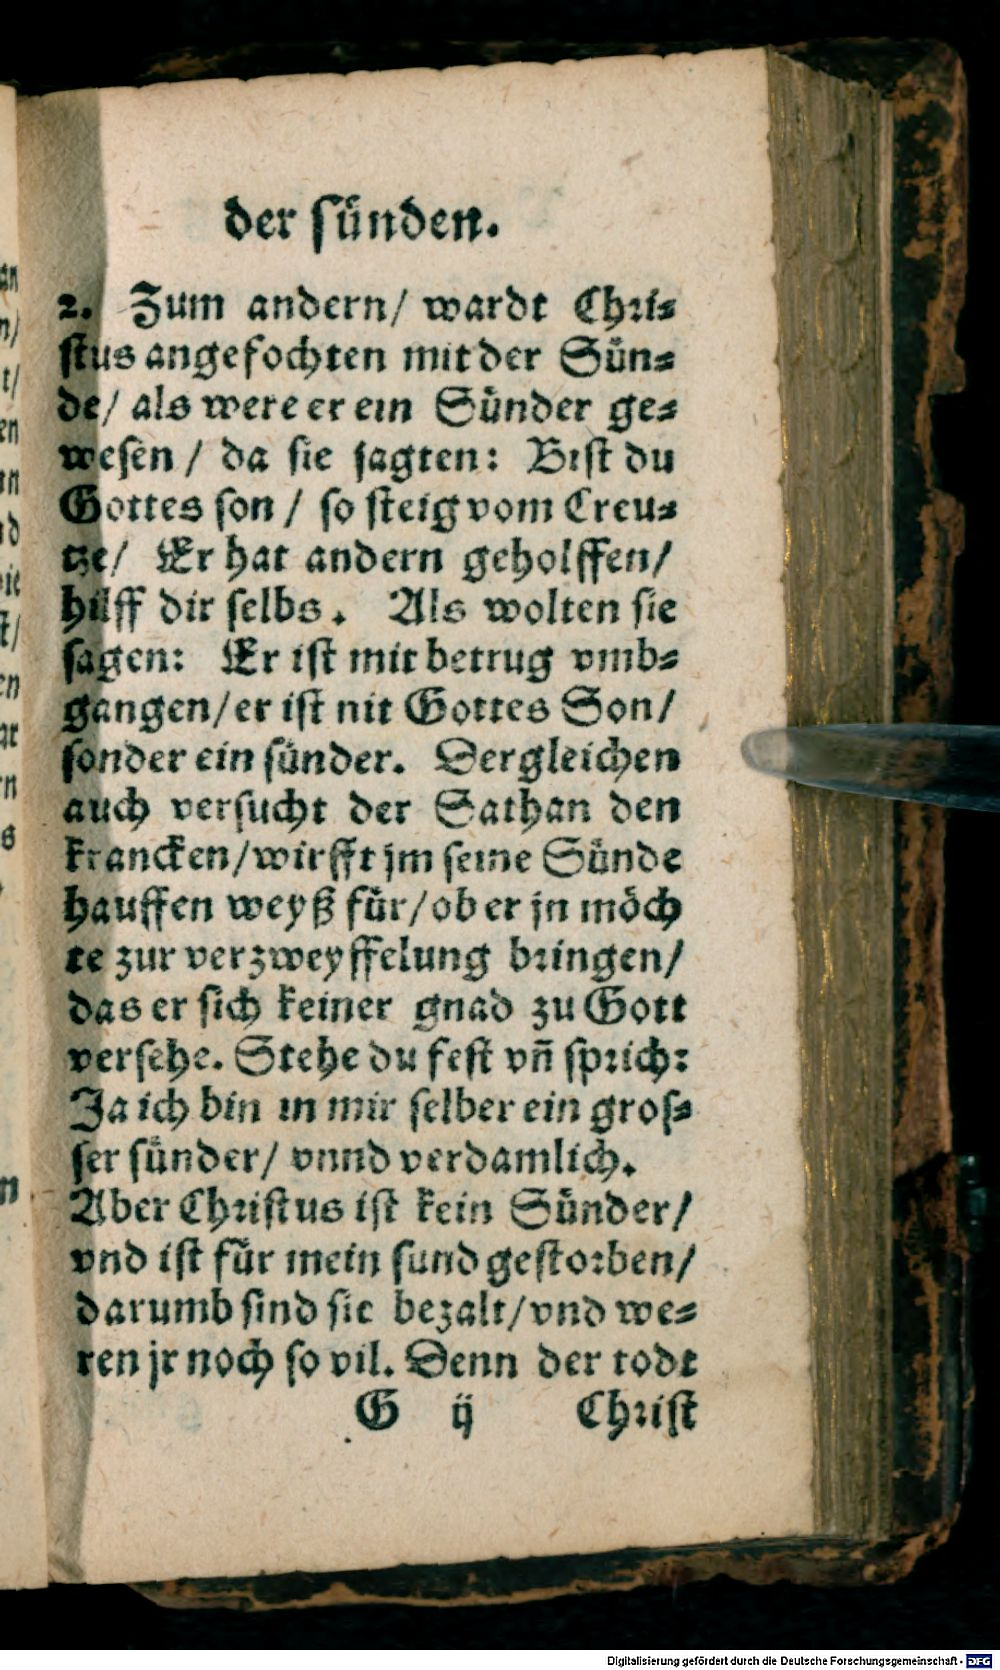 der sünden.
2. Zum andern/ wardt Chri⸗
stus angefochten mit der Sün⸗
de/ als were er ein Sünder ge⸗
wesen / da sie sagten: Bist du
Gottes son / so steig vom Creu⸗
tze/ Er hat andern geholffen/
hilff dir selbs. Als wolten sie
sagen: Er ist mit betrug vmb⸗
gangen/ er ist nit Gottes Son/
sonder ein sünder. Dergleichen
auch versucht der Sathan den
krancken/ wirfft jm seine Sünde
hauffen weyß für/ ob er jn möch
te zur verzweyffelung bringen/
das er sich keiner gnad zu Gott
versehe. Stehe du fest vñ sprich:
Ja ich bin in mir selber ein gros⸗
ser sünder/ vnnd verdamlich.
Aber Christus ist kein Sünder/
vnd ist für mein sünd gestorben/
darumb sind sie bezalt/ vnd we⸗
ren jr noch so vil. Denn der todt
G ij Christ
Digitalisierung gefördert durch die Deutsche Forschungsgemeinschaft - DFG